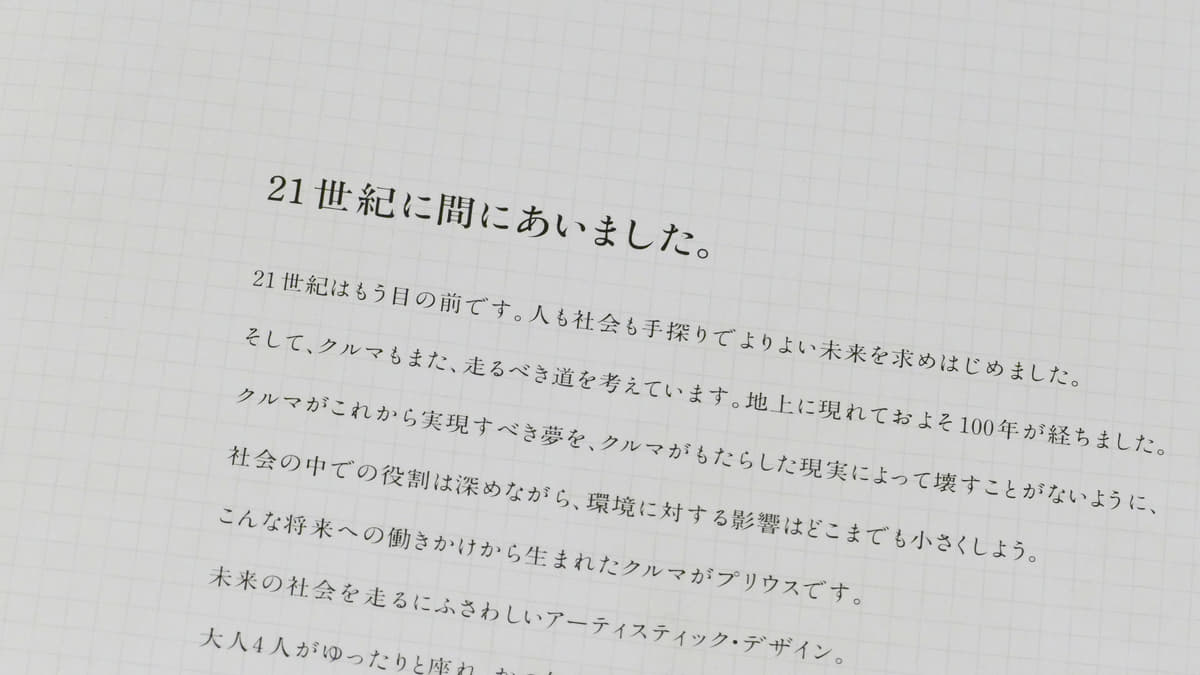 21世紀に間にあいました。
21世紀はもう目の前です。人も社会も手探りでよりよい未来を求めはじめました。
そして、クルマもまた、走るべき道を考えています。地上に現れておよそ100年が経ちました。
クルマがこれから実現すべき夢を、クルマがもたらした現実によって壊すことがないように、
社会の中での役割は深めながら、環境に対する影響はどこまでも小さくしよう。
こんな将来への働きかけから生まれたクルマがプリウスです。
未来の社会を走るにふさわしいアーティスティック・デザイン。
大人4人がゆったりと座れ、